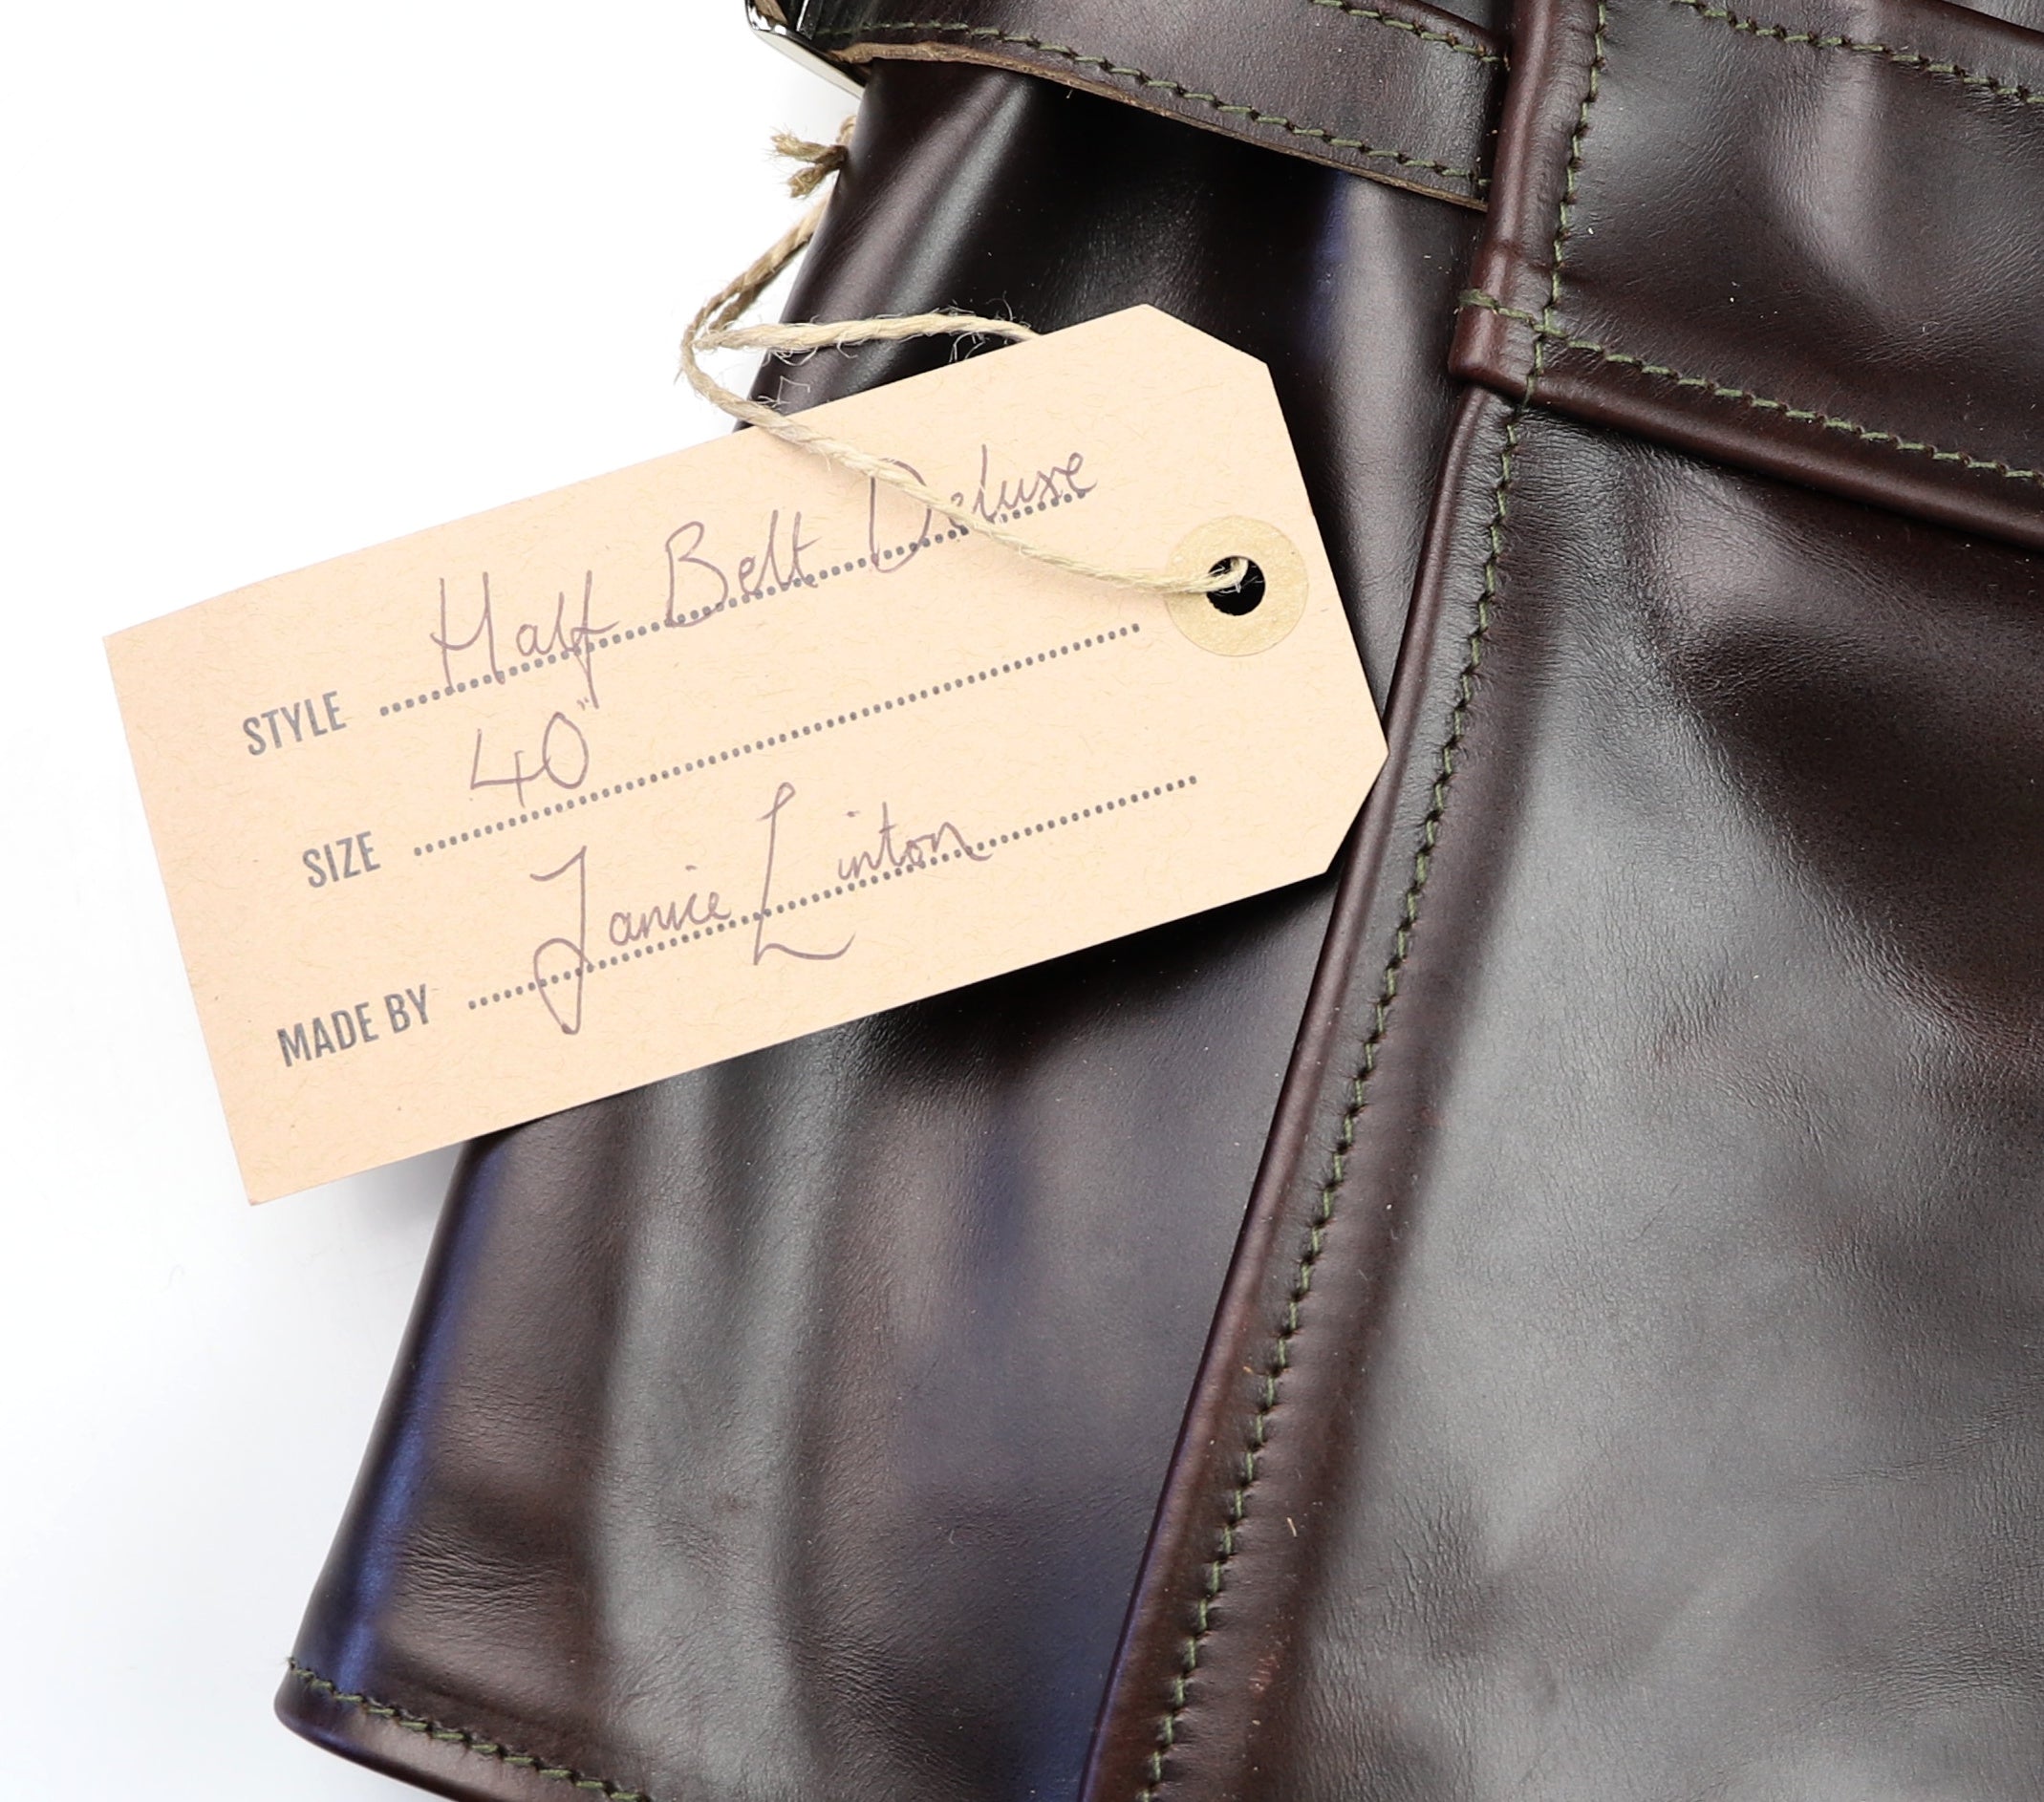 STYLE Half Belt Deluxe
SIZE 40"
MADE BY Janice Linton